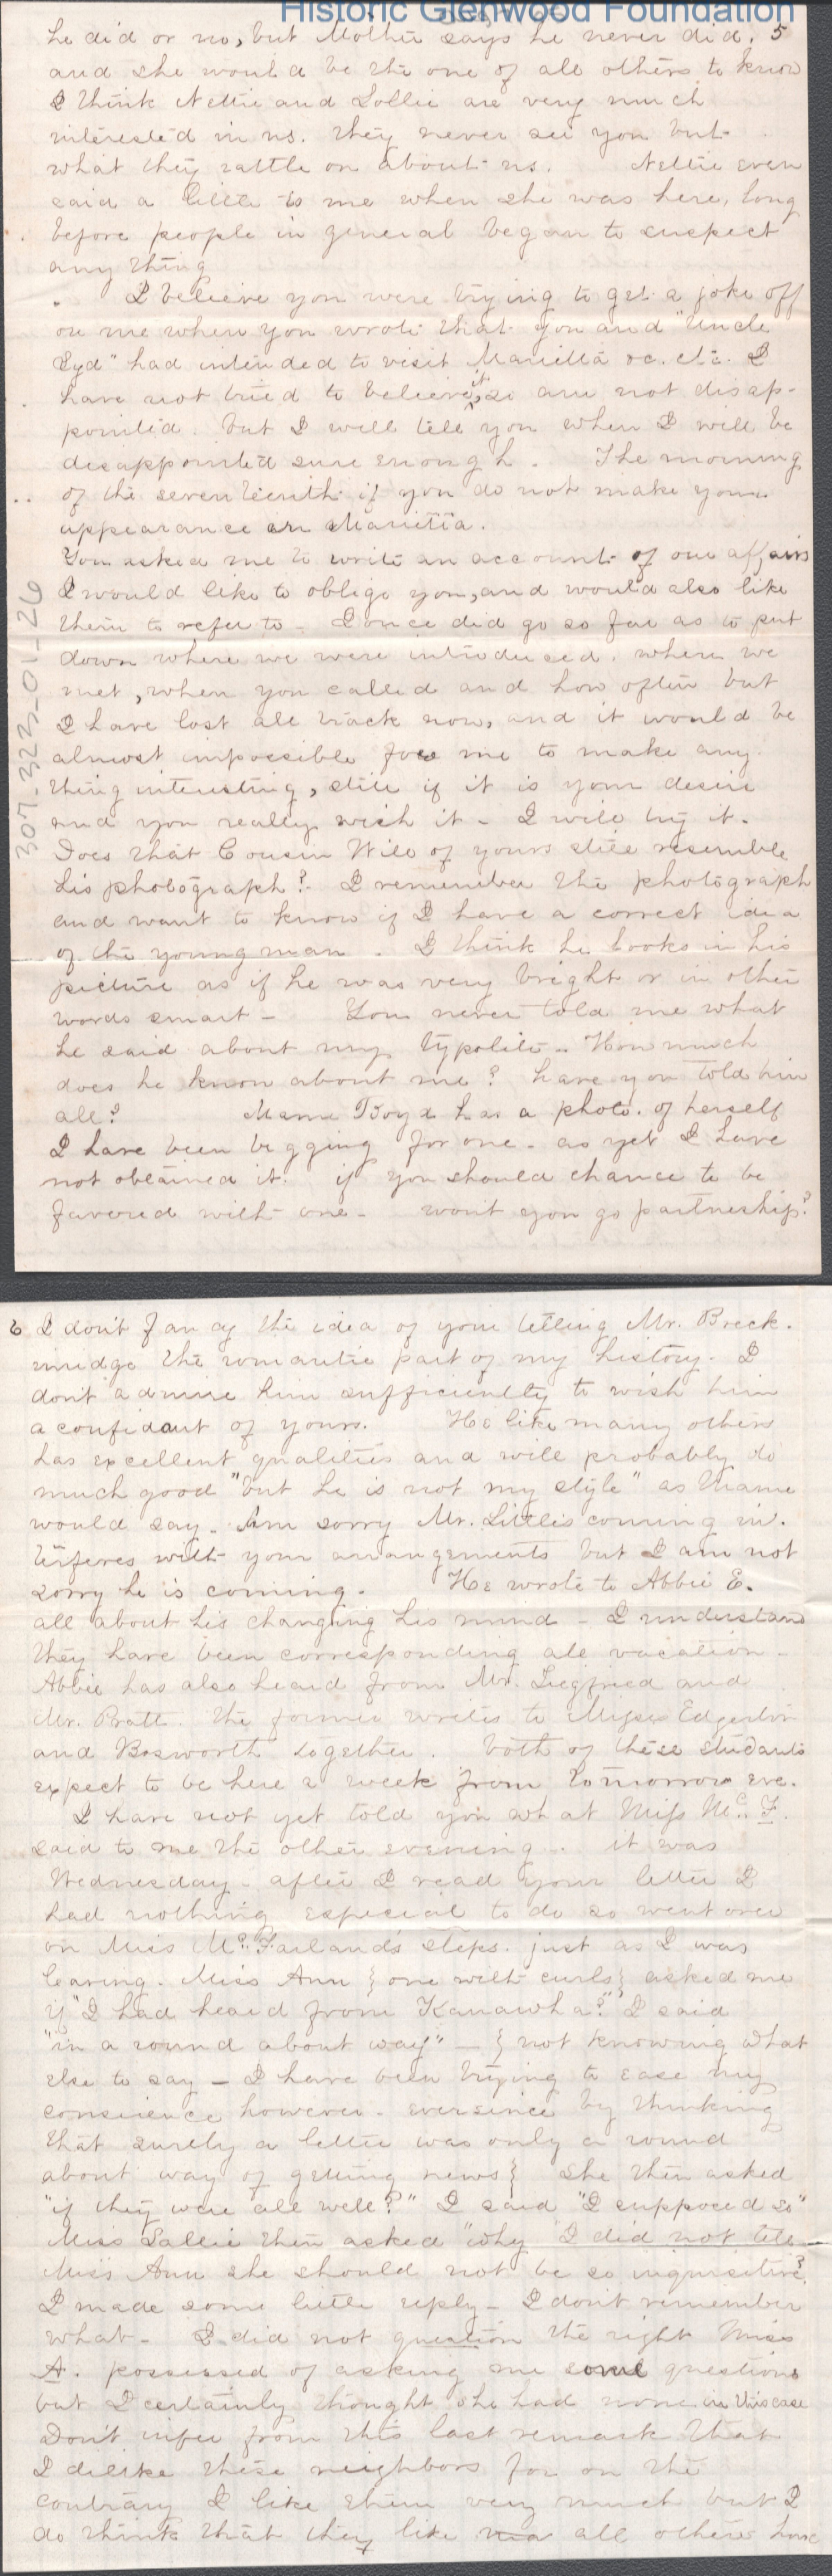 Historic Glenwood Foundation
he did or no, but Mother says he never did. 5
and she would be the one of all others to know
I think Nettie and Lollie are very much
interested in us. they never see you but
what they rattle on about us. Nettie even
said a little to me when she was here, long
before people in general began to suspect
any thing
I believe you were trying to get a joke off
on me when you wrote that you and "Uncle
Syd" had intended to visit Marietta oc. etc. I
have not tried to believe it, so am not disap-
pointed. but I will tell you when I will be
disappointed sure enough. The morning
of the seventeenth if you do not make your
appearance in Marietta.
You asked me to write an account of our affairs
I would like to oblige you, and would also like
them to refer to - I once did go so far as to put
down where we were introduced. where we
met, when you called and how often but
I have lost all track now, and it would be
almost impossible for me to make any
thing interesting, still if it is your desire
and you really wish it - I will try it.
Does that Cousin Will of yours still resemble
his photograph? I remember the photograph
and want to know if I have a correct idea
of the young man. I think he looks in his
picture as if he was very bright or in other
words smart - You never told me what
he said about my - How much
does he know about me? have you told him
all? Mame Boyd has a photo. of herself
I have been begging for one - as yet I have
not obtained it. if you should chance to be
favored with one - wont you go partnership?
307-323-01-26
6 I dont fancy the idea of your telling Mr. Breck.
inridge the romantic part of my history. I
dont admire him sufficiently to wish him
a confidant of yours. He like many others
has excellent qualities and will probably do
much good "but he is not my style" as Mame
would say. Am sorry Mr. Little's coming in.
terferes with your arrangements but I am not
sorry he is coming. He wrote to Abbie E.
all about his changing his mind - I understand
they have been corresponding all vacation -
Abbie has also heard from Mr. Siegfried and
Mr. Pratt. the former writes to Misses Edgerton
and Bosworth together. both of these students
expect to be here a week from tomorrow eve.
I have not yet told you what Miss Mc. F.
said to me the other evening. it was
Wednesday - after I read your letter I
had nothing especial to do so went over
on Miss Mc.Farland's steps. just as I was
leaving - Miss Ann {one with curls} asked me
if "I had heard from Kanawha?" I said
"in a round about way" - {not knowing what
else to say - I have been trying to ease my
conscience however - ever since by thinking
that surely a letter was only a round
about way of getting news} she then asked
"if they were all well?" I said "I supposed so"
Miss Sallie then asked "why I did not tell
Miss Ann she should not be so inquisitive?
I made some little reply - I dont remember
what - I did not question the right Miss
A. possessed of asking me some questions
but I certainly thought she had none in this case
Don't infer from this last remark that
I dislike these neighbors for on the
contrary I like them very much but I
do think that they like all others have